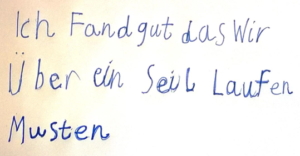 Ich Fand gut das Wir
Über ein Seil Laufen
Musten